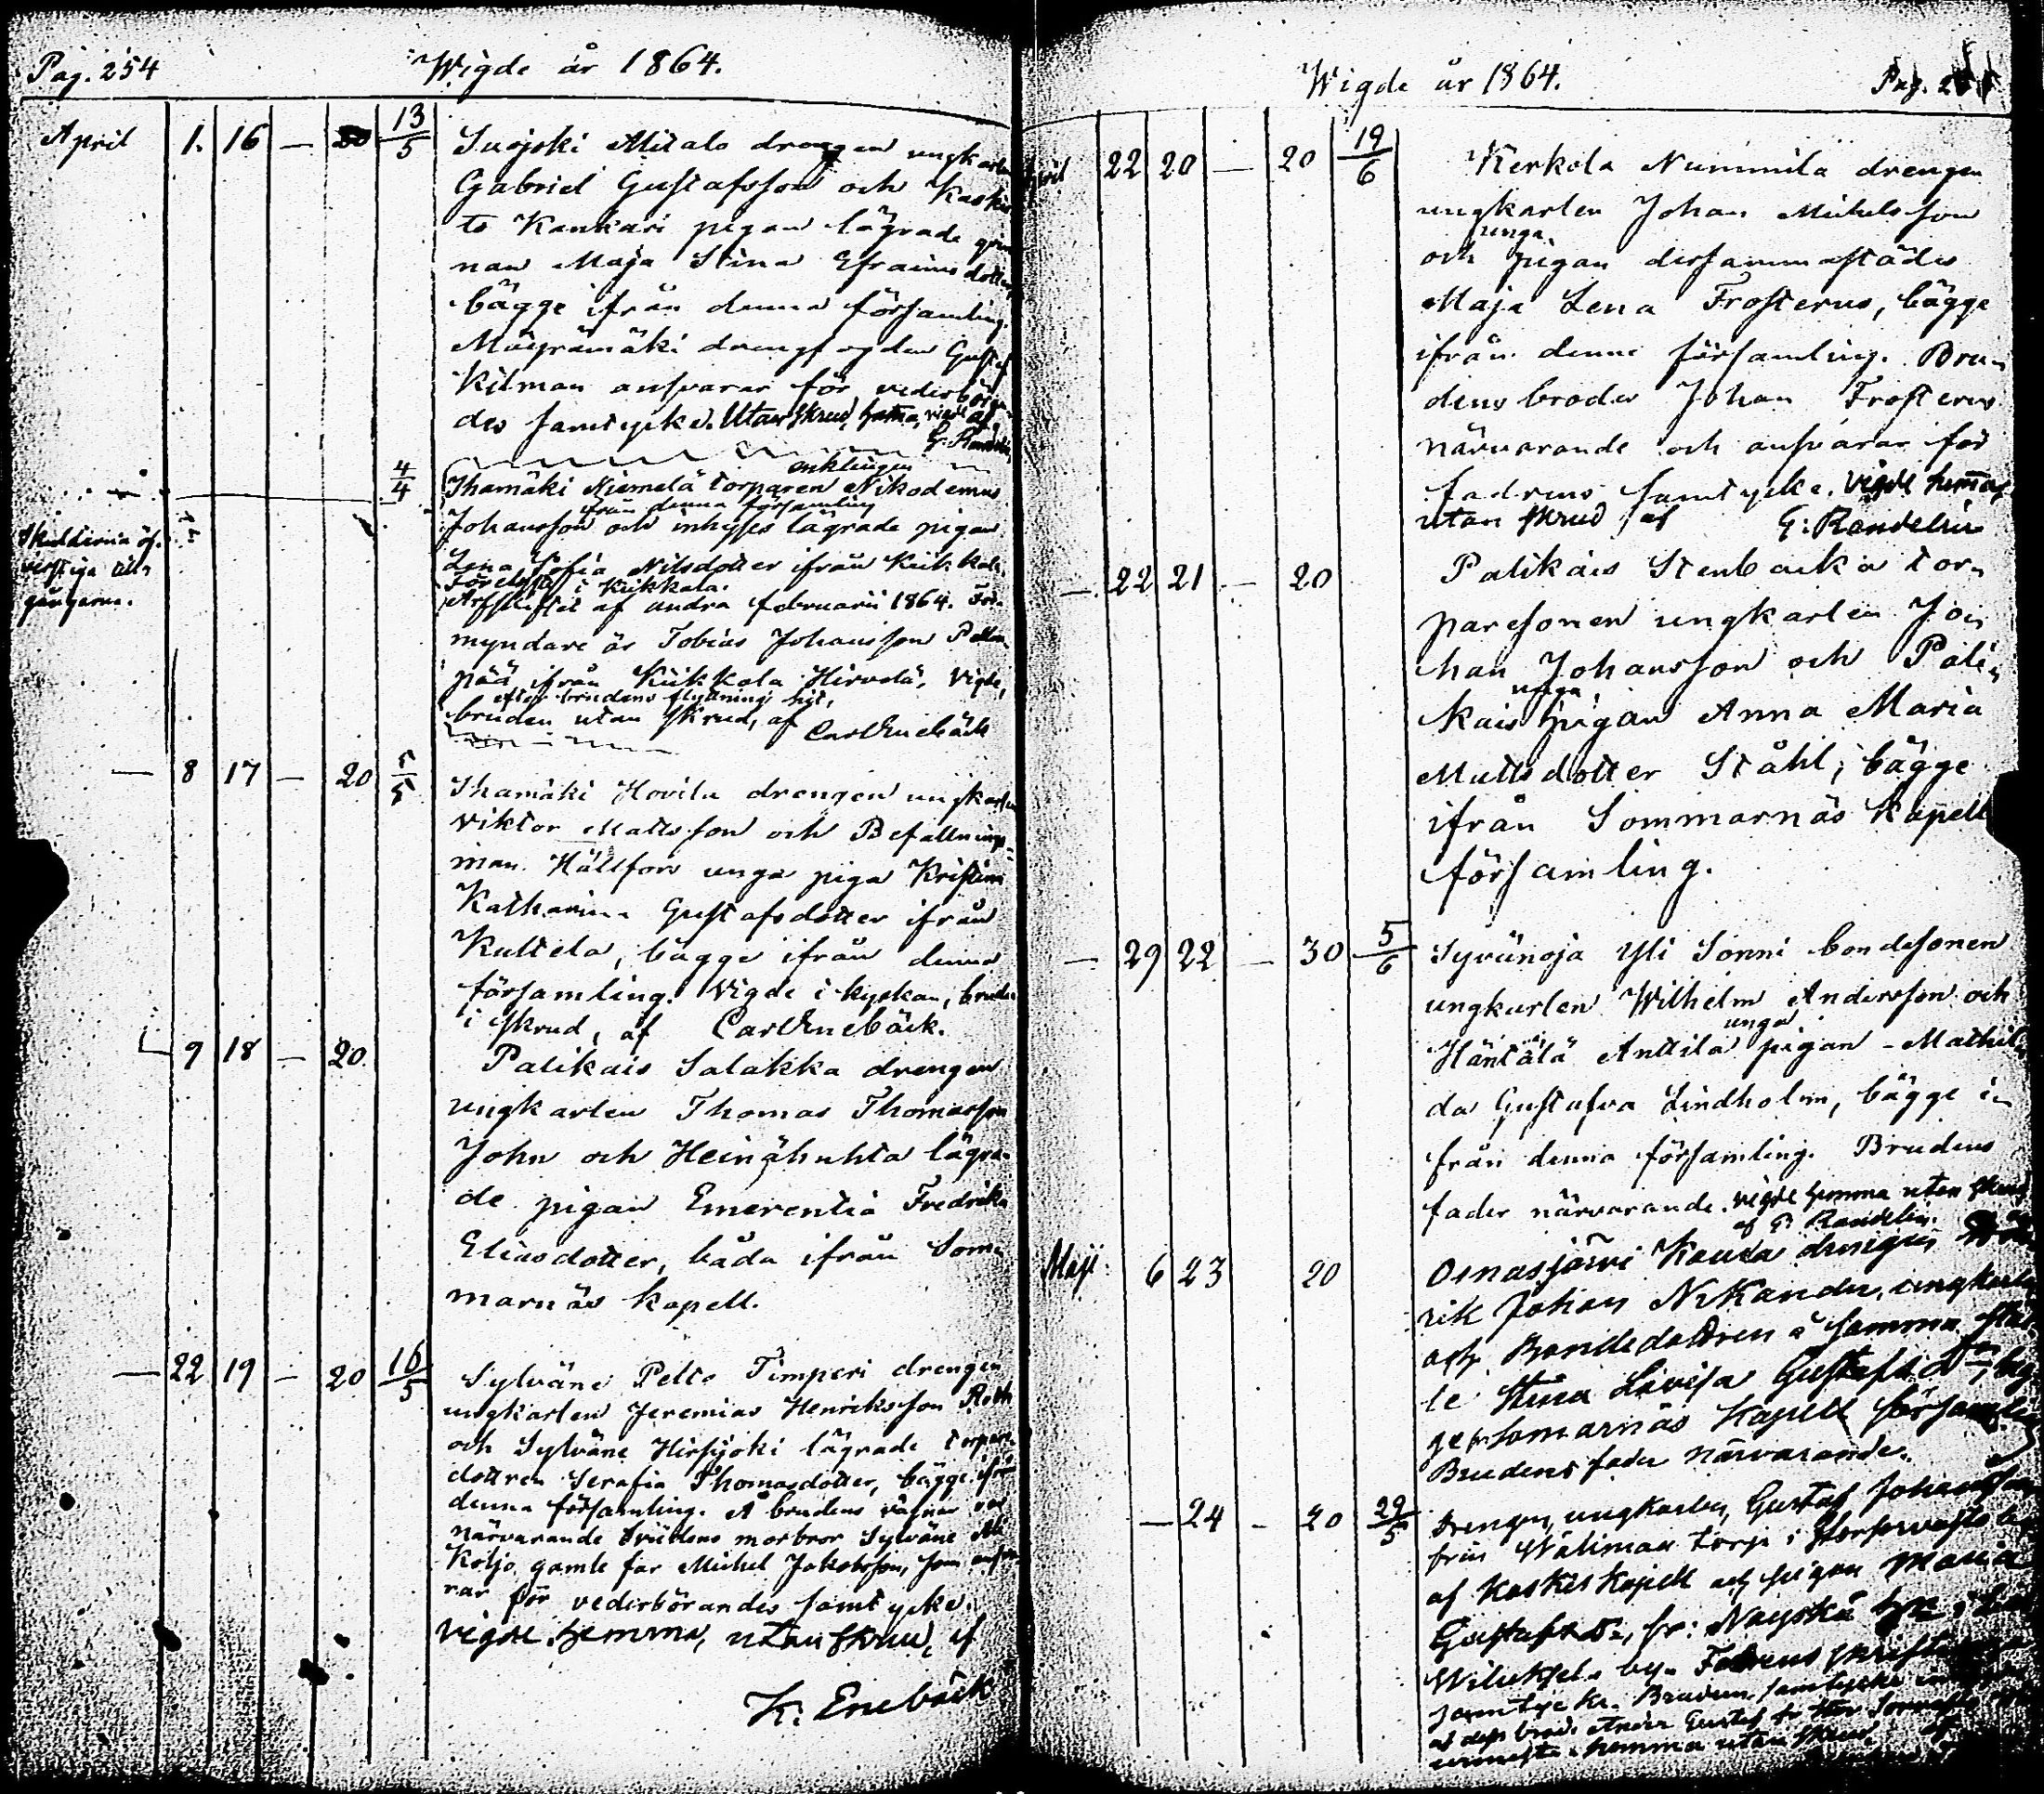 Pag. 254
Wigde år 1864.
April 1. 16 — 20 13/5
Suojoki Alitalo drengen ungkarlen
Gabriel Gustafsson och Kaskis
to Kankari pigan lägrade qvin
nan Maja Stina Efraimsdotter
bägge ifrån denna församling.
Mäyrämäki drengfogden Gustaf
Kilman ansvarar för vederböran
des samtycke. Utan skrud, hema, vigde af
G. Randelin
4/4
enklingen
Ihamäki Niemelä torparen Nikodemus
från denna församling
Johansson och inhyses lägrade pigan
Lena Sofia Nilsdotter ifrån Kiikkala
i Kiikkala.
Arfskiftet af andra februarii 1864. För-
myndare är Tobias Johansson
pää ifrån Kiikkala Hirvelä, Vigde,
efter brudens flyttning hit,
bruden utan skrud, af Carl Enebäck
öf-
till-
gångarne.
— 8 17 — 20 5/5
Ihamäki Hovila drengen ungkarlen
Viktor Mattsson och Befallnings-
man Hällfors unga piga Kristina
Katharina Gustafsdotter ifrån
Kultela, bägge ifrån denna
församling. Vigde i kyrkan, bruden
i skrud, af Carl Enebäck.
— 9 18 — 20
Palikais Salakka drengen
ungkarlen Thomas Thomasson
John och Heinähuhta lägra-
de pigan Emerentia Fredrika
Eliasdotter, båda ifrån Som-
marnäs kapell.
— 22 19 — 20 16/5
Sylväne Pelto Timperi drengen
ungkarlen Jeremias Henriksson Roth
och Sylväne Hirsijoki lägrade torpare
dottren Serafia Thomasdotter, bägge ifrån
denna församling. Å brudens vägnar var
närvarande brudens morbror Sylväne Ali
Koljo gamle far Michel Jakobsson, som ansva
rar för vederbörandes samtycke.
Vigde hemma, utan skrud, af
K. Enebäck
Wigde år 1864.
Pag.
April 22 20 — 20 19/6
Kerkola Nummila drengen
ungkarlen Johan Michelsson
unga
och pigan dersammastädes
Maja Lena Frosterus, bägge
ifrån denne församling. Bru-
dens broder Johan Frosterus
närvarande och ansvarar för
fadrens samtycke. Vigde hemma
utan skrud af G: Randelin
— 22 21 — 20
Palikais Stenbacka tor-
paresonen ungkarlen Jo-
han Johansson och Pali-
unga
kais pigan Anna Maria
Mattsdotter Ståhl, bägge
ifrån Sommarnäs Kapell
församling.
— 29 22 — 30 5/6
Syvänoja Yli Sonni bondesonen
ungkarlen Wilhelm Andersson och
unga
Häntälä Anttila pigan Mathil-
da Gustafva Lindholm, bägge i-
från denna församling. Brudens
fader närvarande. Vigde hemma utan skrud
af G Randelin.
Maji 6 23 20
Oinasjärvi Kauta drengen
rik Johan Nikander, ungkarlen
och Bondedottren å samma stäl-
le Stina Lovisa Gustafsd:r, bäg
ge fr. Somarnäs Kapell församling
Brudens fader närvarande.
— 24 — 20 29/5
Drengen, ungkarlen, Gustaf Johansson
från Wäliman torp i
af Koskis Kapell och pigan Maria
Gustafsd:r, fr:
by. Fadrens
samtycke. Brudens samtycke
af dess broder Gustaf
hemma utan skrud